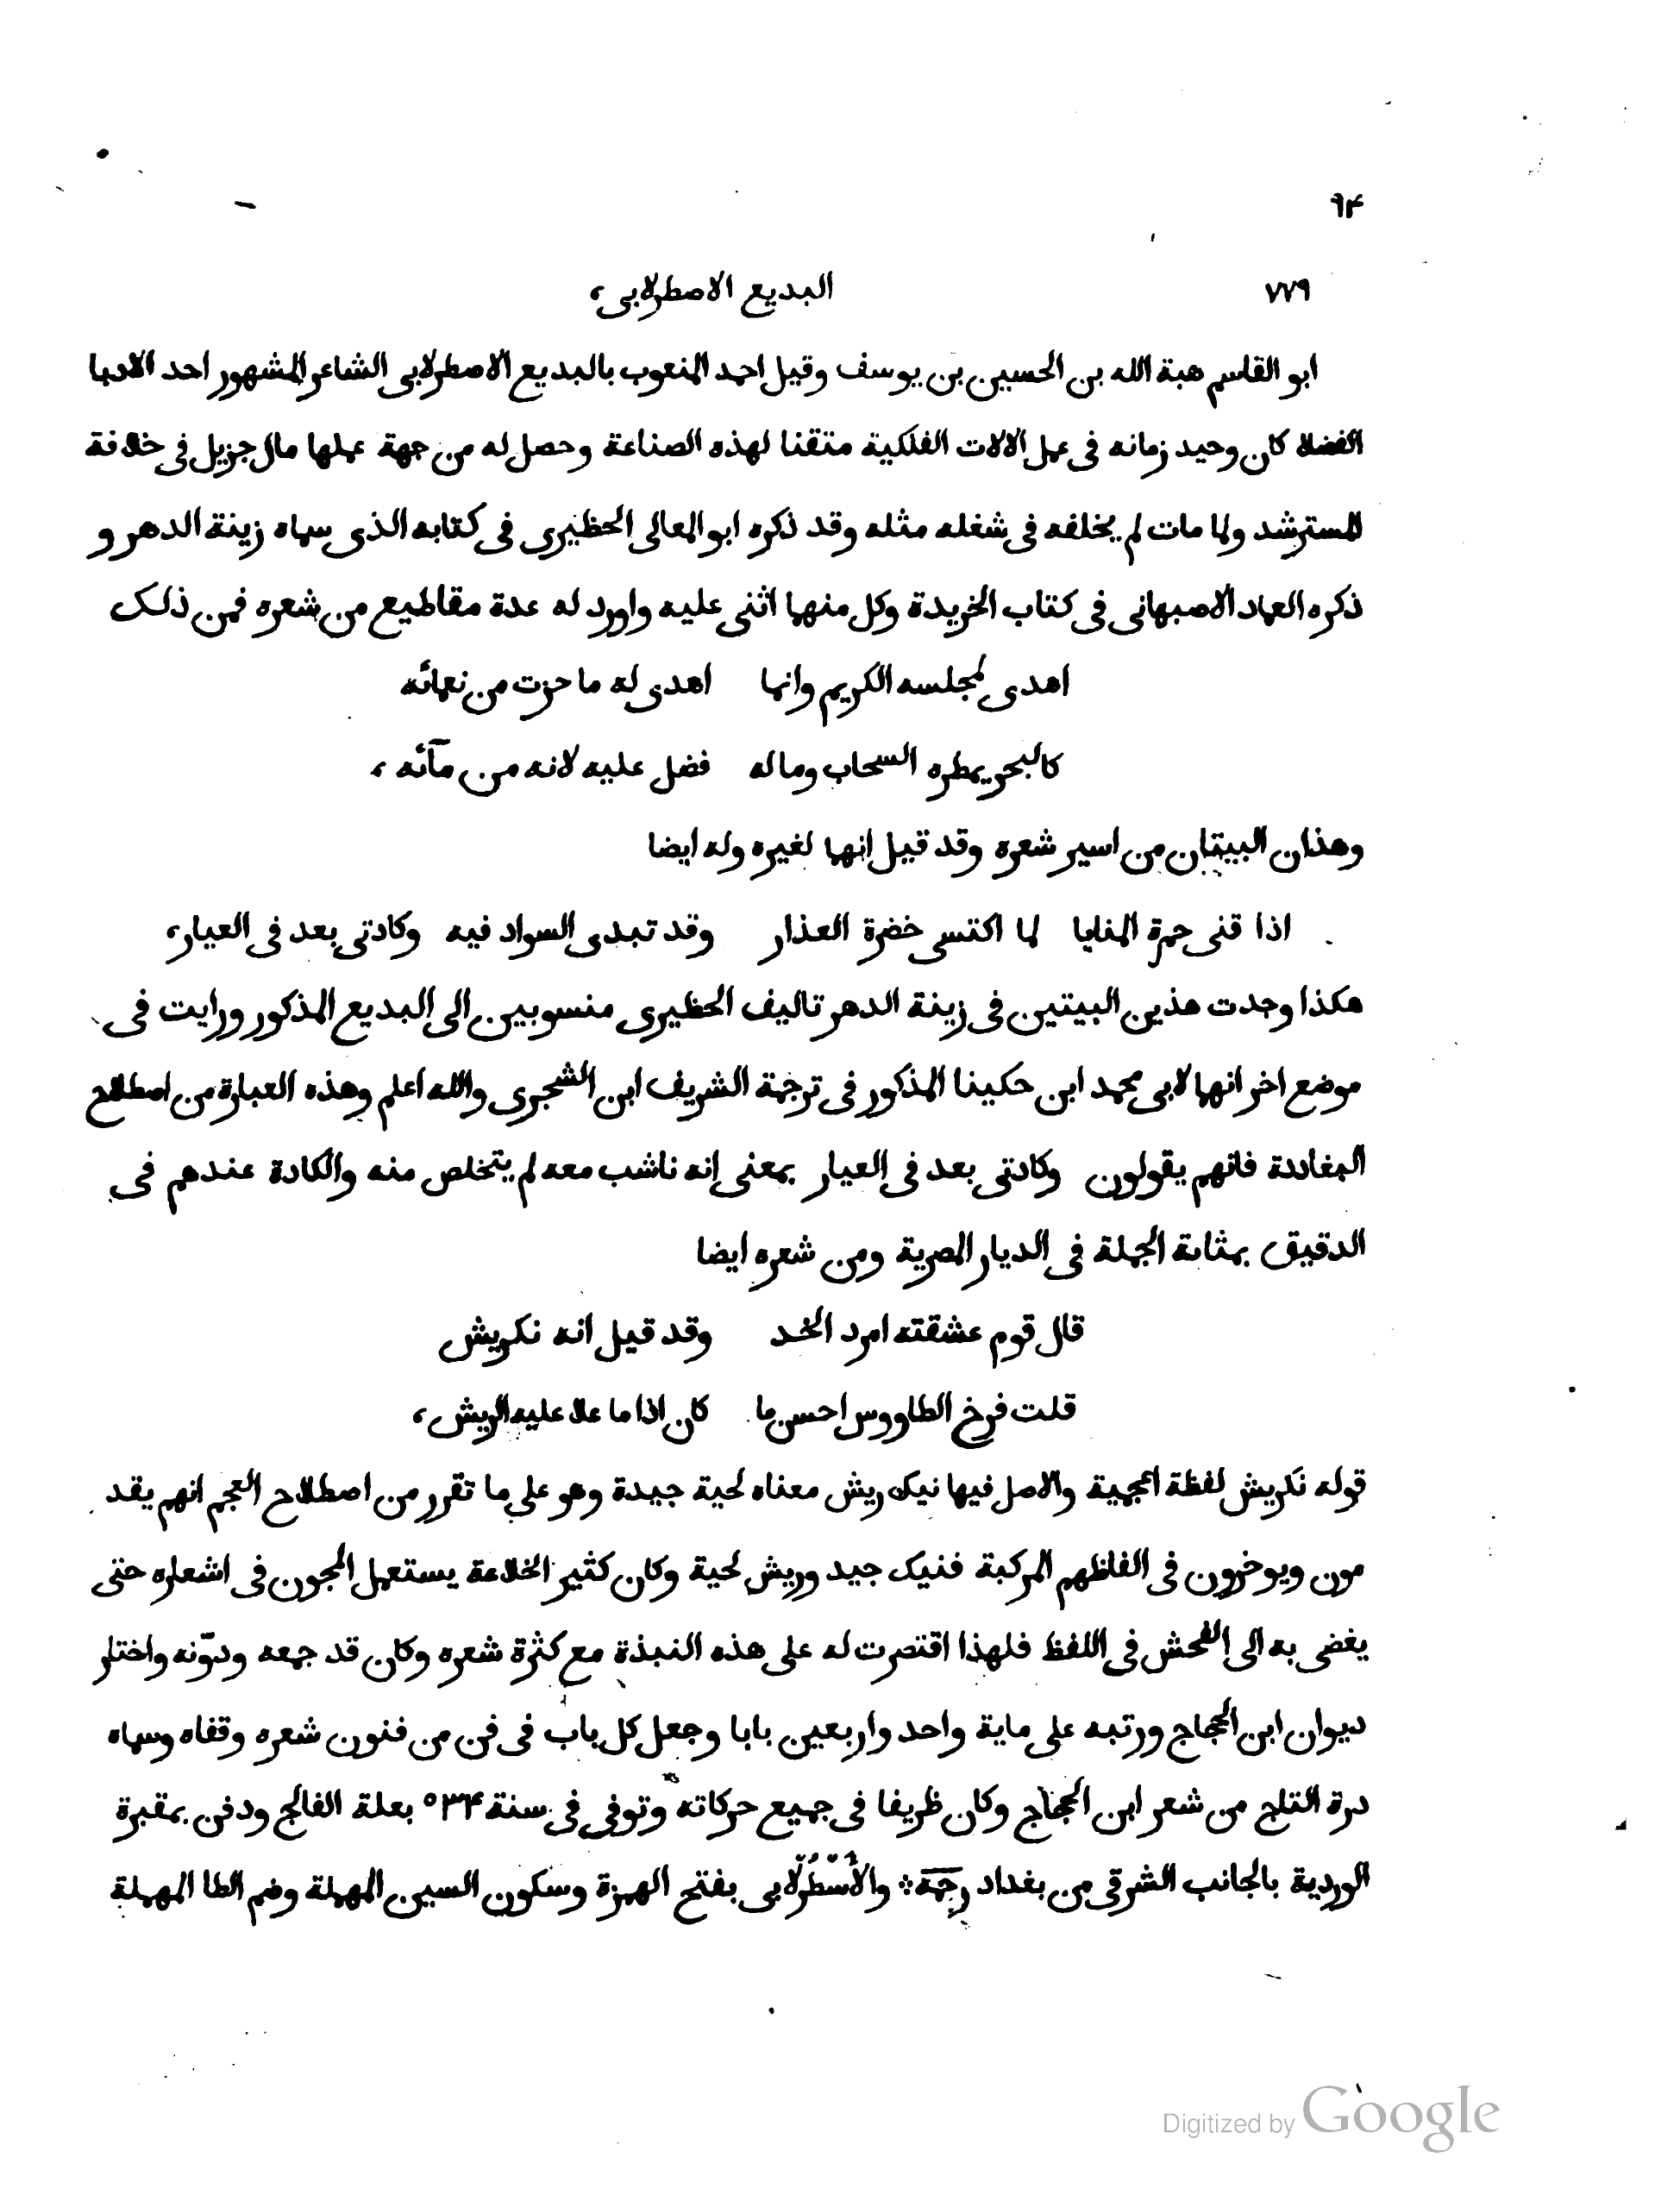 ٩۴
٧٧٩ البديع الاصطرلابى،
ابو القاسم هبة الله بن الحسين بن يوسف وقيل احمد المنعوب بالبديع الاصطرلابى الشاعر المشهور احد الادبا
الفضلا كان وحيد زمانه فى عمل الالات الفلكية متقنا لهذه الصناعة وحصل له من جهة عملها مال جزيل فى خلافة
المسترشد ولما مات لم يخلفه فى شغله مثله وقد ذكره ابو المعالى الحظيرى فى كتابه الذى سماه زينة الدهر و
ذكره العماد الاصبهانى فى كتاب الخريدة وكل منهما اثنى عليه واورد له عدة مقاطيع من شعره فمن ذلك
اهدى لمجلسه الكريم وانما اهدى له ما حزت من نعمائه
كالبحر يمطره السحاب وماله فضل عليه لانه من مآئه،
وهذان البيتان من اسير شعره وقد قيل انهما لغيره وله ايضا
اذا قنى حمرة المنايا لما اكتسى خضرة العذار وقد تبدى السواد فيه وكادتى بعد فى العيار،
هكذا وجدت هذين البيتين فى زينة الدهر تاليف الحظيرى منسوبين الى البديع المذكور ورايت فى
موضع اخر انهما لابى محمد ابن حكينا المذكور فى ترجمة الشريف ابن الشجرى والله اعلم وهذه العبارة من اصطلاح
البغاددة فانهم يقولون وكادتى بعد فى العيار بمعنى انه ناشب معه لم يتخلص منه والكادة عندهم فى
الدقيق بمثابة الجملة فى الديار المصرية ومن شعره ايضا
قال قوم عشقته امرد الخد وقد قيل انه نكريش
قلت فرخ الطاووس احسن ما كان اذا ما علا عليه الريش،
قوله نكريش لفظة اعجمية والاصل فيها نيك ريش معناه لحية جيدة وهو على ما تقرر من اصطلاح العجم انهم يقد
مون ويوخرون فى الفاظهم المركبة فنيك جيد وريش لحية وكان كثير الخلاعة يستعمل المجون فى اشعاره حتى
يغضى به الى الفحش فى اللفظ فلهذا اقتصرت له على هذه النبذة مع كثرة شعره وكان قد جمعه ودوّنه واختار
ديوان ابن الحجاج ورتبه على ماية واحد واربعين بابا وجعل كل باب فى فن من فنون شعره وقفاه وسماه
درة التاج من شعر ابن الحجاج وكان ظريفا فى جميع حركاته وتوفى فى سنة ٥٣۴ بعلة الفالج ودفن بمقبرة
الوردية بالجانب الشرقى من بغداد رحمه والأسْطُرْلابى بفتح الهمزة وسكون السين المهملة وضم الطا المهملة
Digitized by Google